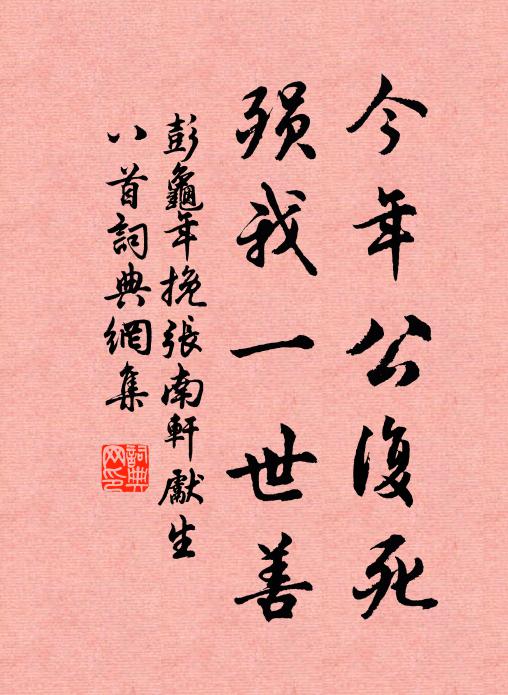 今年公復死
殞我一世善
彭龜年挽張南軒獻生
八首詞典網集
詞典网印